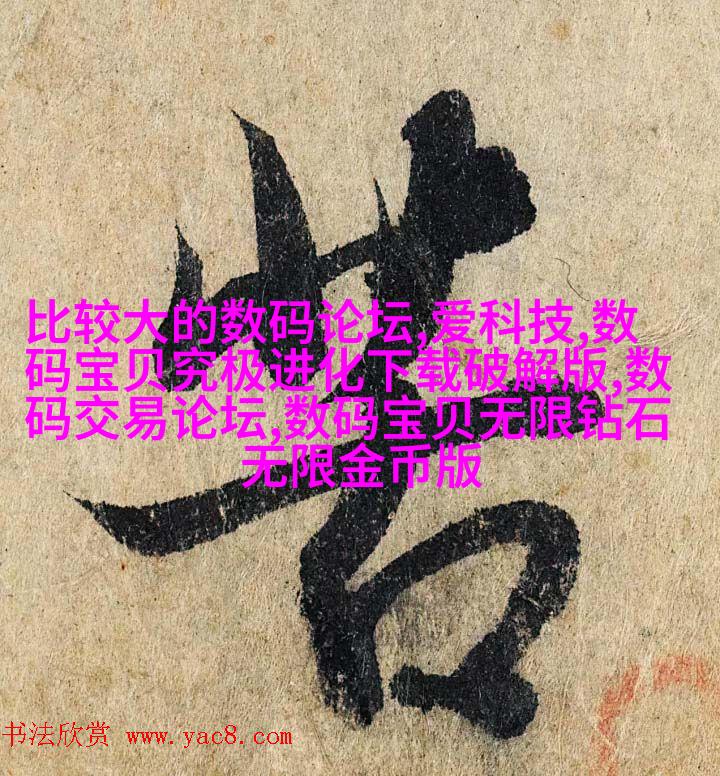 苦
比较大的数码论坛,爱科技,数
码宝贝究极进化下载破解版,数
码交易论坛,数码宝贝无限钻石
无限金币版
书法欣赏 www.yac8.com